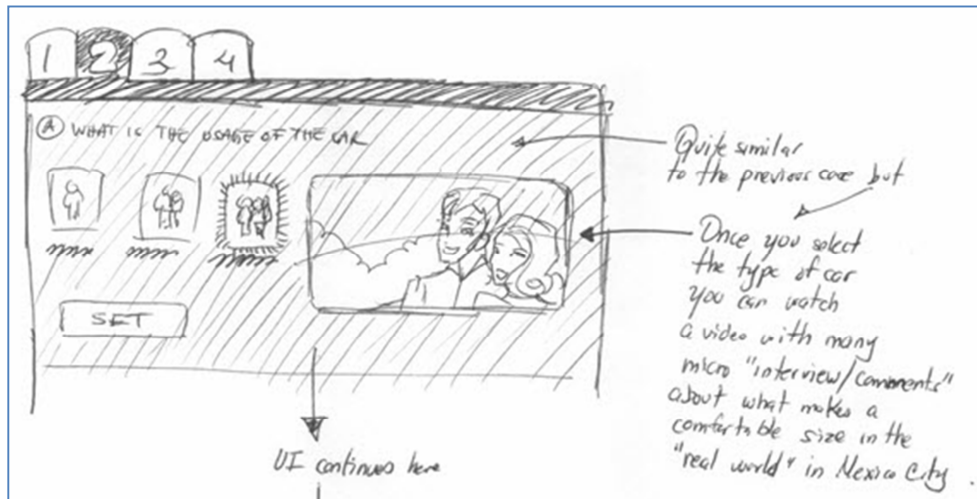 1 2 3 4
A WHAT IS THE USAGE OF THE CAR
SET
UI continues here
Quite similar
to the previous case but
Once you select
the type of car
you can watch
a video with many
micro "interview/comments"
about what makes a
comfortable size in the
"real world" in Mexico City.